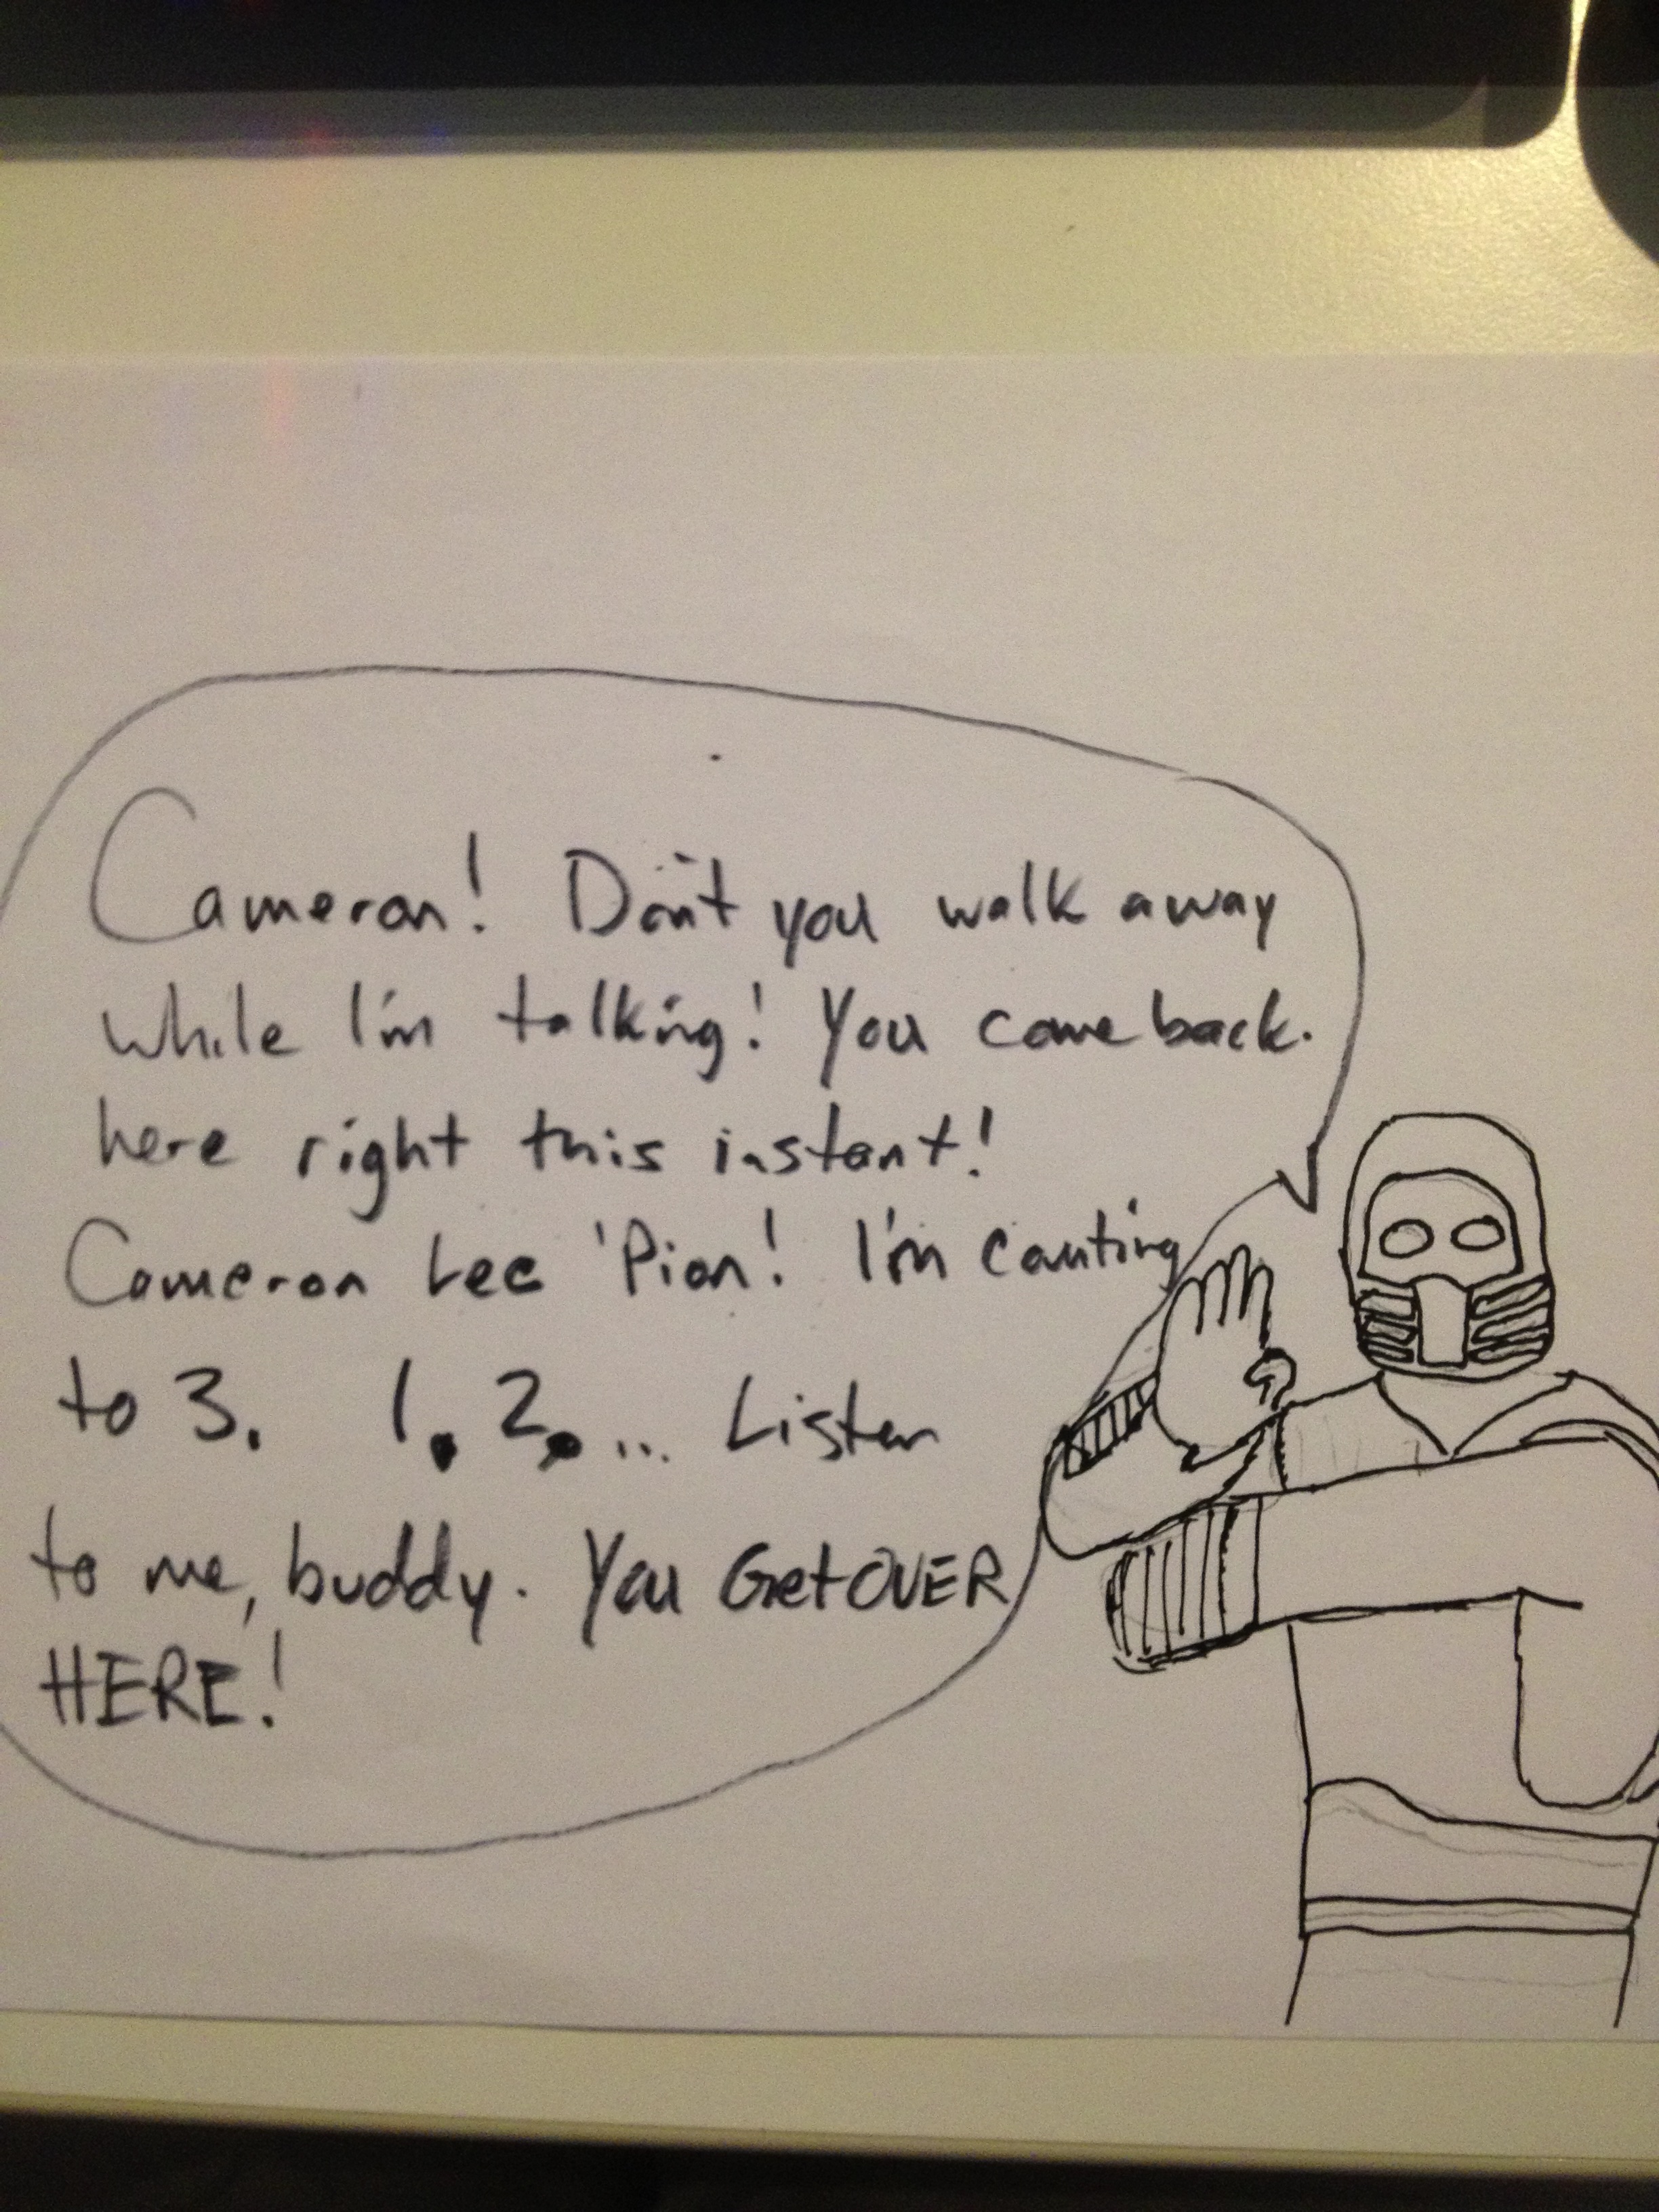 Cameron! Don't you walk away
while I'm talking! You come back.
here right this instant!
Cameron Lee 'Pion! I'm counting
to 3. 1. 2. ... Listen
to me, buddy. You Get OVER
HERE!